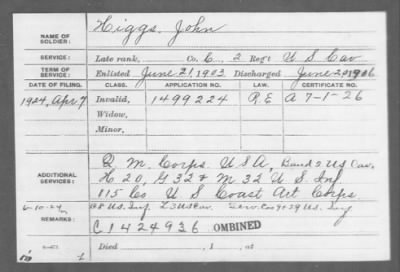 NAME OF SOLDIER: Higgs, John
SERVICE: Late rank, Co. E, 2 Reg't U S Cav
TERM OF SERVICE: Enlisted June 21, 1903 Discharged June 20 1906
DATE OF FILING. CLASS. APPLICATION NO. LAW. CERTIFICATE NO.
1924, Apr 7 Invalid, 1499224 R E A 7-1-26
Widow,
Minor,
ADDITIONAL SERVICES:
Q. M. Corps. U S A, Band 2 U S Cav.
H 20, G 32 & M 32 U S Inf
115 Co U S Coast Art Corps.
6-10-24
REMARKS:
U.S. Inf L 3 US Cav. Serv. Co 29 U.S. Inf
C 1424936 OMBINED
Died , 1 , at